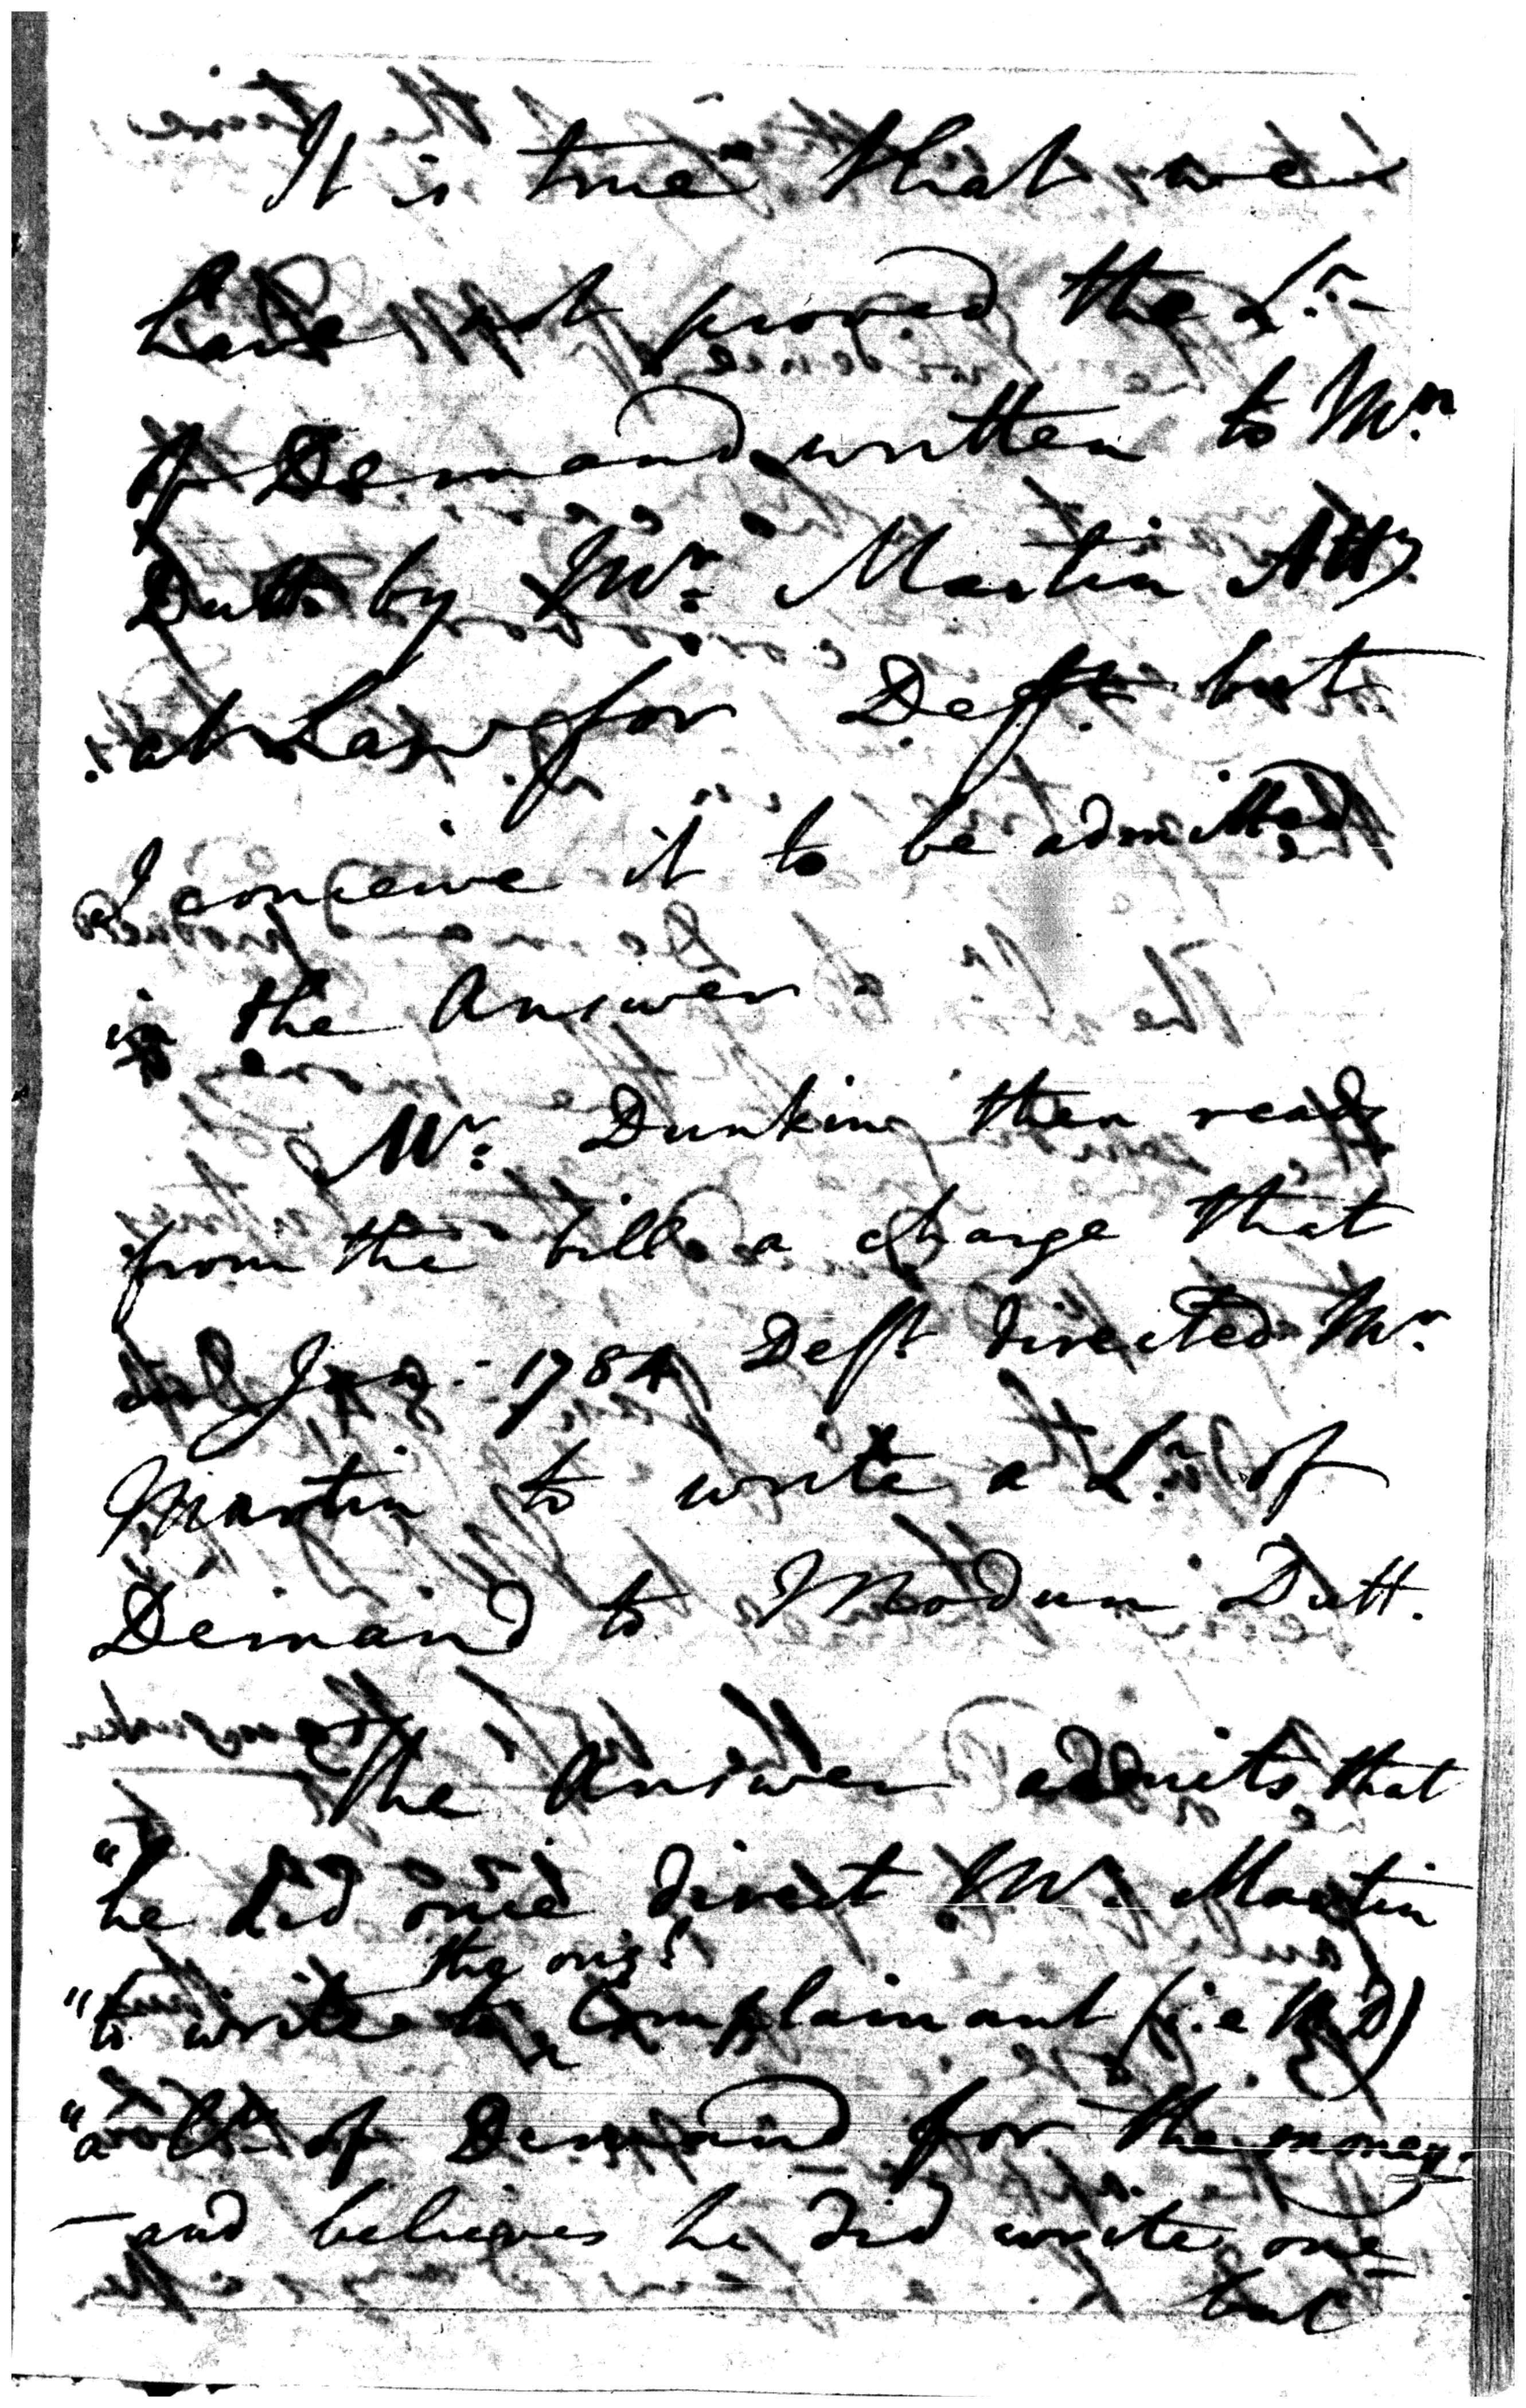 It is true that we
have not proved the Lr.
of Demand written to Mr.
Dutt by Mr. Martin Atty
at Law for Deft. but
I conceive it to be admitted
in the Answer
Mr. Dunkin then read
from the bill a charge that
in Jany. 1784 Deft. directed Mr.
Martin to write a Lr. of
Demand to Modun Dutt.
The Answer admits that
"he did once direct Mr. Martin
"to write to the origl. Complainant (i.e M.D)
"a Lr. of Demand for the money.
— and believes he did write one
but